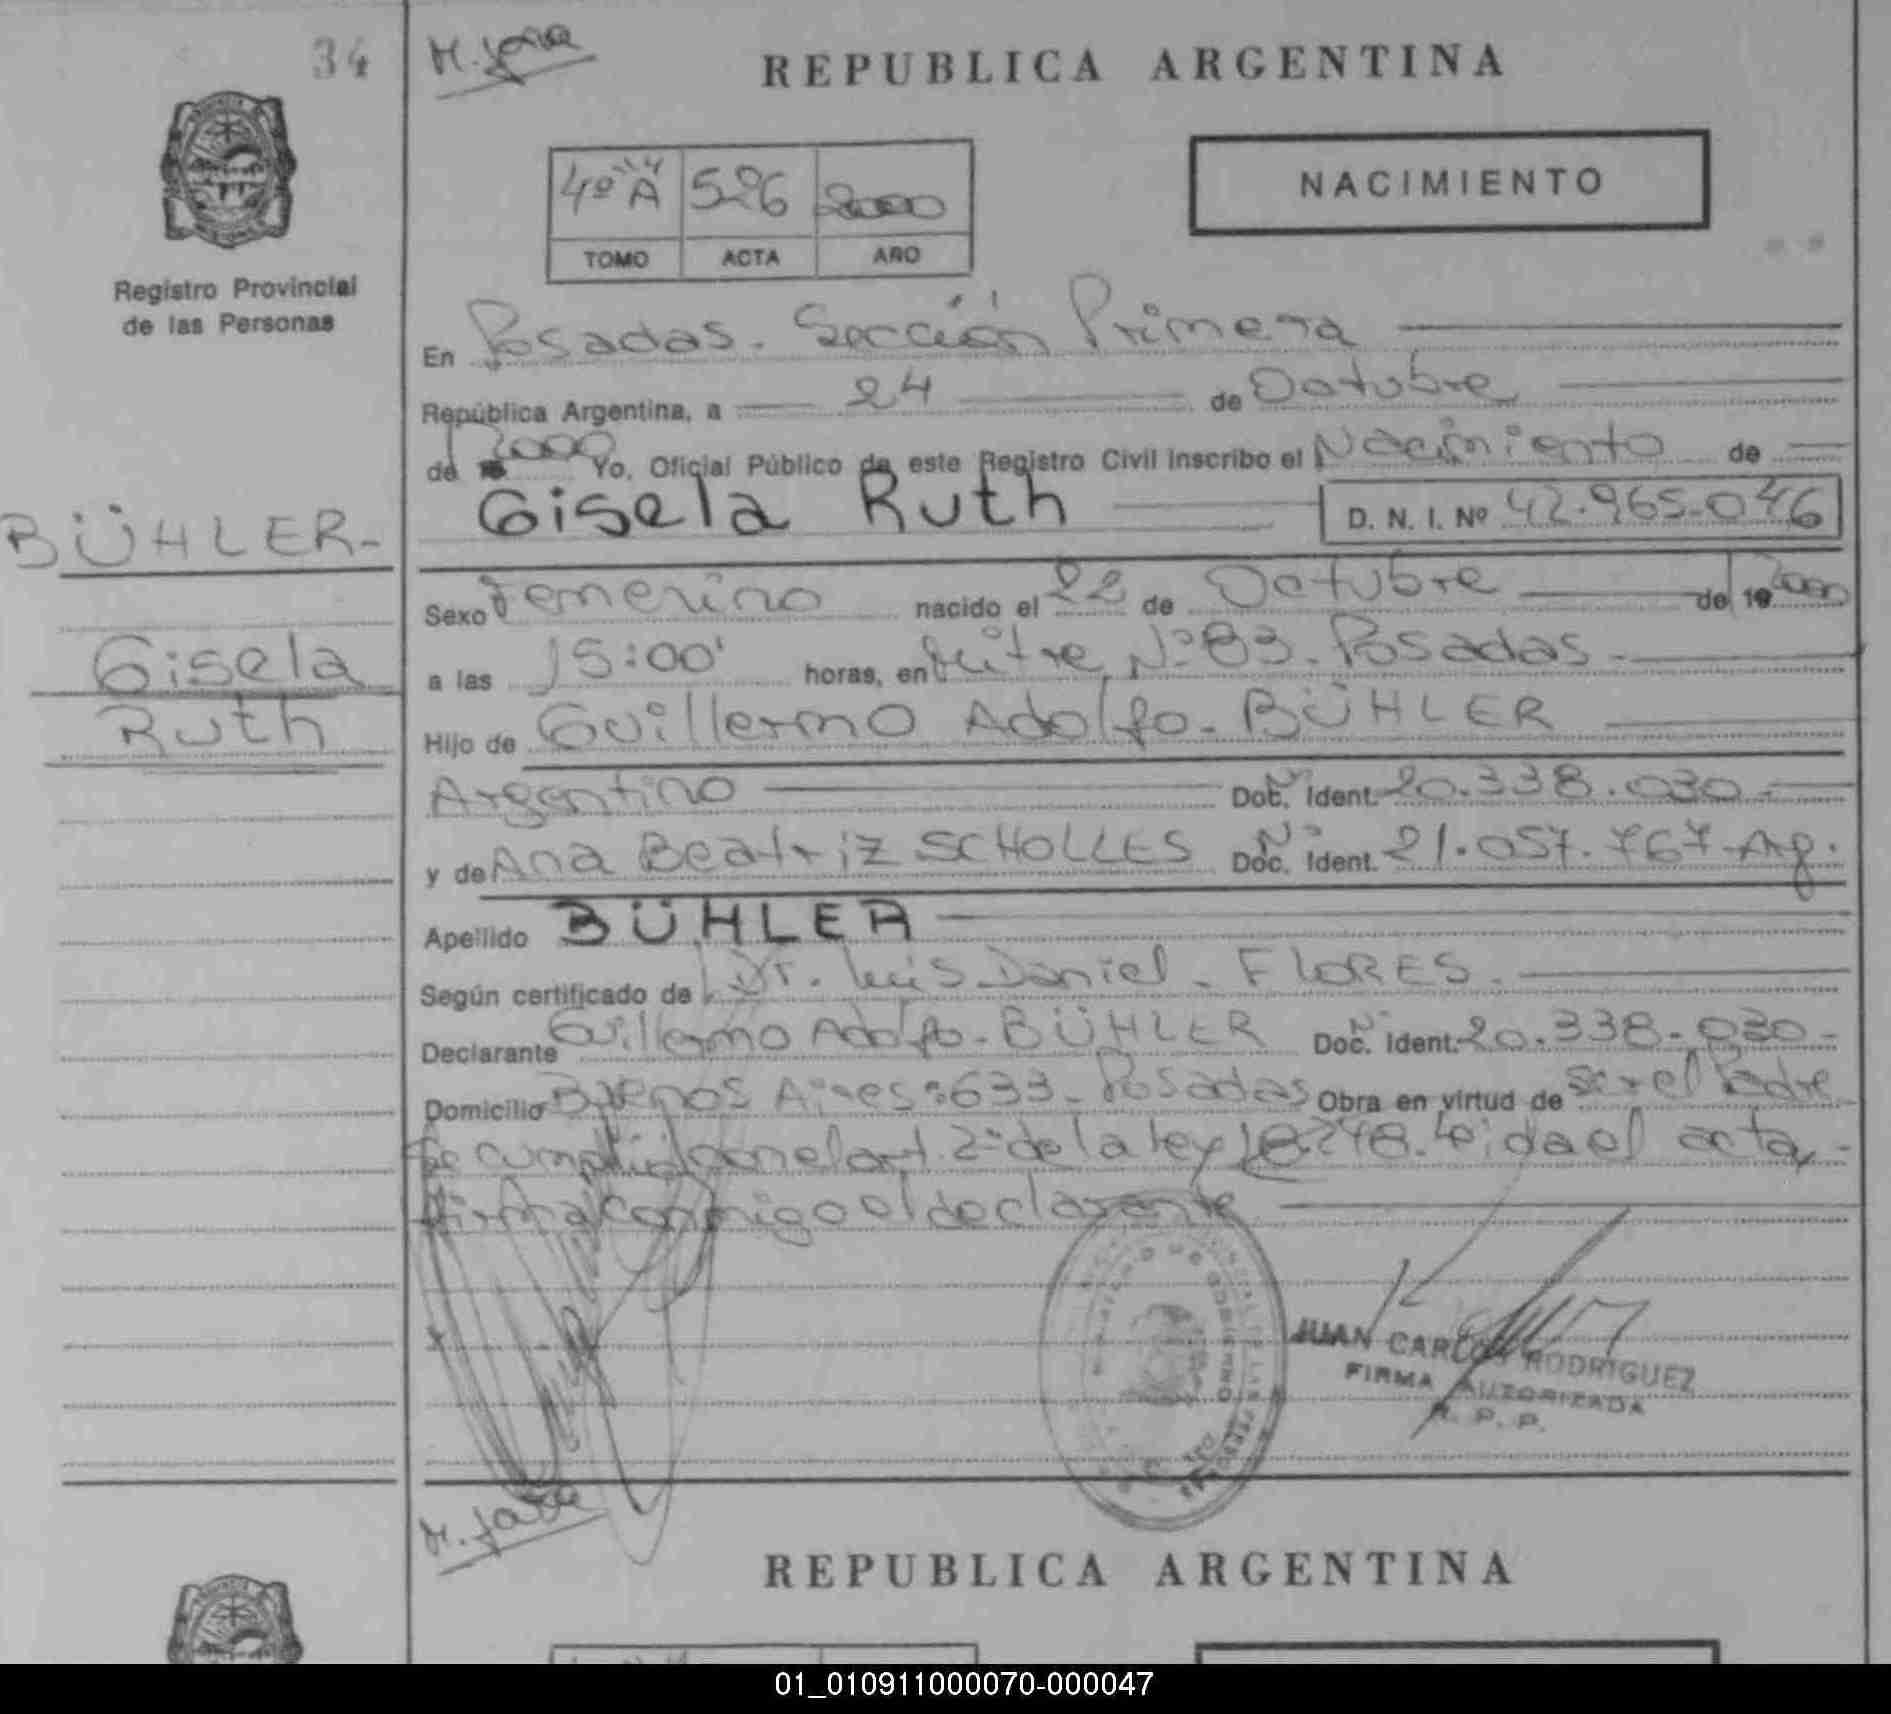 34
REPUBLICA ARGENTINA
4º "A" 526 2000
TOMO ACTA AÑO
NACIMIENTO
Registro Provincial
de las Personas
En Posadas. Sección Primera
República Argentina, a 24 de Octubre
de 2000 Yo, Oficial Público de este Registro Civil inscribo el Nacimiento de
Gisela Ruth D. N. I. Nº 42.965.046
BÜHLER-
Sexo Femenino nacido el 22 de Octubre de 2000
Gisela
a las 15:00' horas, en Mitre Nº 83. Posadas.
Ruth
Hijo de Guillermo Adolfo. BÜHLER
Argentino Doc. Ident. Nº 20.338.030.
y de Ana Beatriz SCHOLLES Doc. Ident. Nº 21.057.767 Arg.
Apellido BÜHLER
Según certificado de Dr. Luis Daniel. FLORES.
Declarante Guillermo Adolfo. BÜHLER Doc. Ident. Nº 20.338.030-
Domicilio Buenos Aires: 633. Posadas Obra en virtud de ser el Padre
Se cumplió con el art. 2º de la ley 18.248. Leida el acta,
firma conmigo el declarante
JUAN CARLOS RODRIGUEZ
FIRMA AUTORIZADA
R. P. P.
REPUBLICA ARGENTINA
01_010911000070-000047